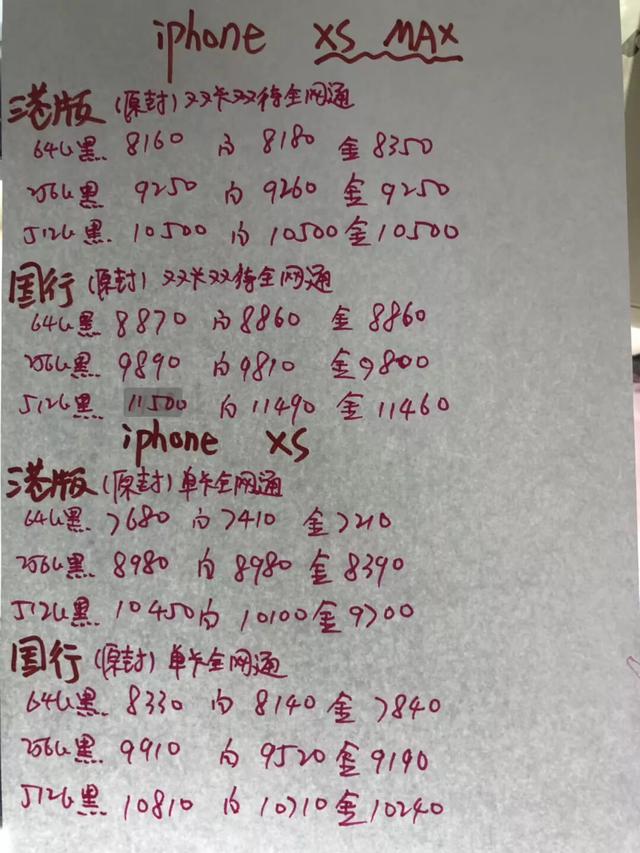 iphone XS MAX
港版(原封)双卡双待全网通
64G黑 8160 白 8180 金 8350
256G黑 9250 白 9260 金 9250
512G黑 10500 白 10500 金 10500
国行(原封)双卡双待全网通
64G黑 8870 白 8860 金 8860
256G黑 9890 白 9810 金 9800
512G黑 11500 白 11490 金 11460
iphone XS
港版(原封)单卡全网通
64G黑 7680 白 7410 金 7210
256G黑 8980 白 8980 金 8390
512G黑 10450 白 10100 金 9700
国行(原封)单卡全网通
64G黑 8330 白 8140 金 7840
256G黑 9910 白 9520 金 9190
512G黑 10810 白 10710 金 10240